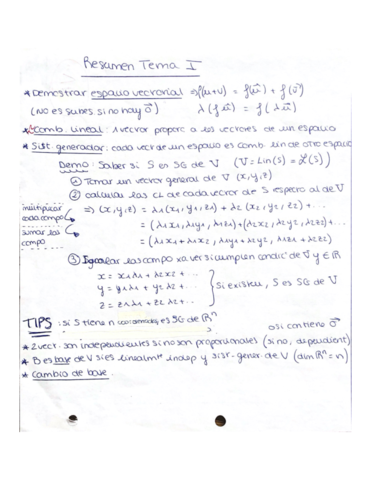 Resumen Tema I
* Demostrar espacio vectorial ⇒ f(u+v) = f(u⃗) + f(v⃗)
(No es subes. si no hay 0⃗) λ(f u⃗) = f(λu⃗)
* Comb. lineal: 1 vector proporc a los vectores de un espacio
* Sist. generador: cada vect de un espacio es comb. lin de otro espac
Demo: Saber si S es SG de V (V = Lin(S) = L(S))
① Tomar un vector general de V (x,y,z)
② calcular las CL de cada vector de S respecto al de V
multiplicar cada compo ⇒ (x,y,z) = λ1(x1, y1, z1) + λ2(x2, y2, z2) + ...
sumar las compo = (λ1x1, λ1y1, λ1z1) + (λ2x2, λ2y2, λ2z2) + ...
= (λ1x1 + λ1x2, λ1y1 + λ2y2, λ1z1 + λ2z2)
③ Igualar las compo xa ver si cumplen condic' de V y ∈ ℝ
x = x1λ1 + λ2x2 + ...
y = y1λ1 + y2λ2 + ... } Si existen, S es SG de V
z = z1λ1 + z2λ2 + ...
TIPS: si S tiene n coordenadas, es SG de ℝⁿ
o si contiene 0⃗
* 2 vect. son independientes si no son proporcionales (si no, dependient)
* B es base de V si es linealmte indep y sist. gener de V (dim ℝⁿ = n)
* Cambio de base.